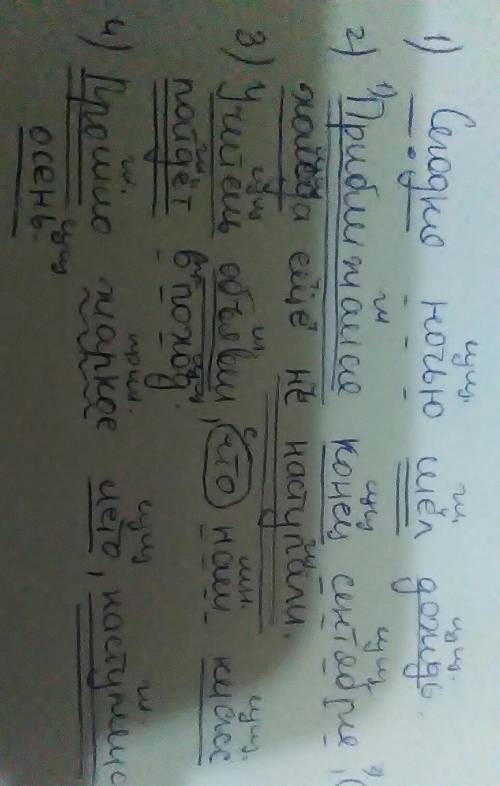 1) Сегодня ночью шёл дождь.
2) Приближался конец сентября,
ещё не наступали.
3) Учитель объявил, что наш класс
пойдёт в поход.
4) Прошло жаркое лето, наступила
осень.